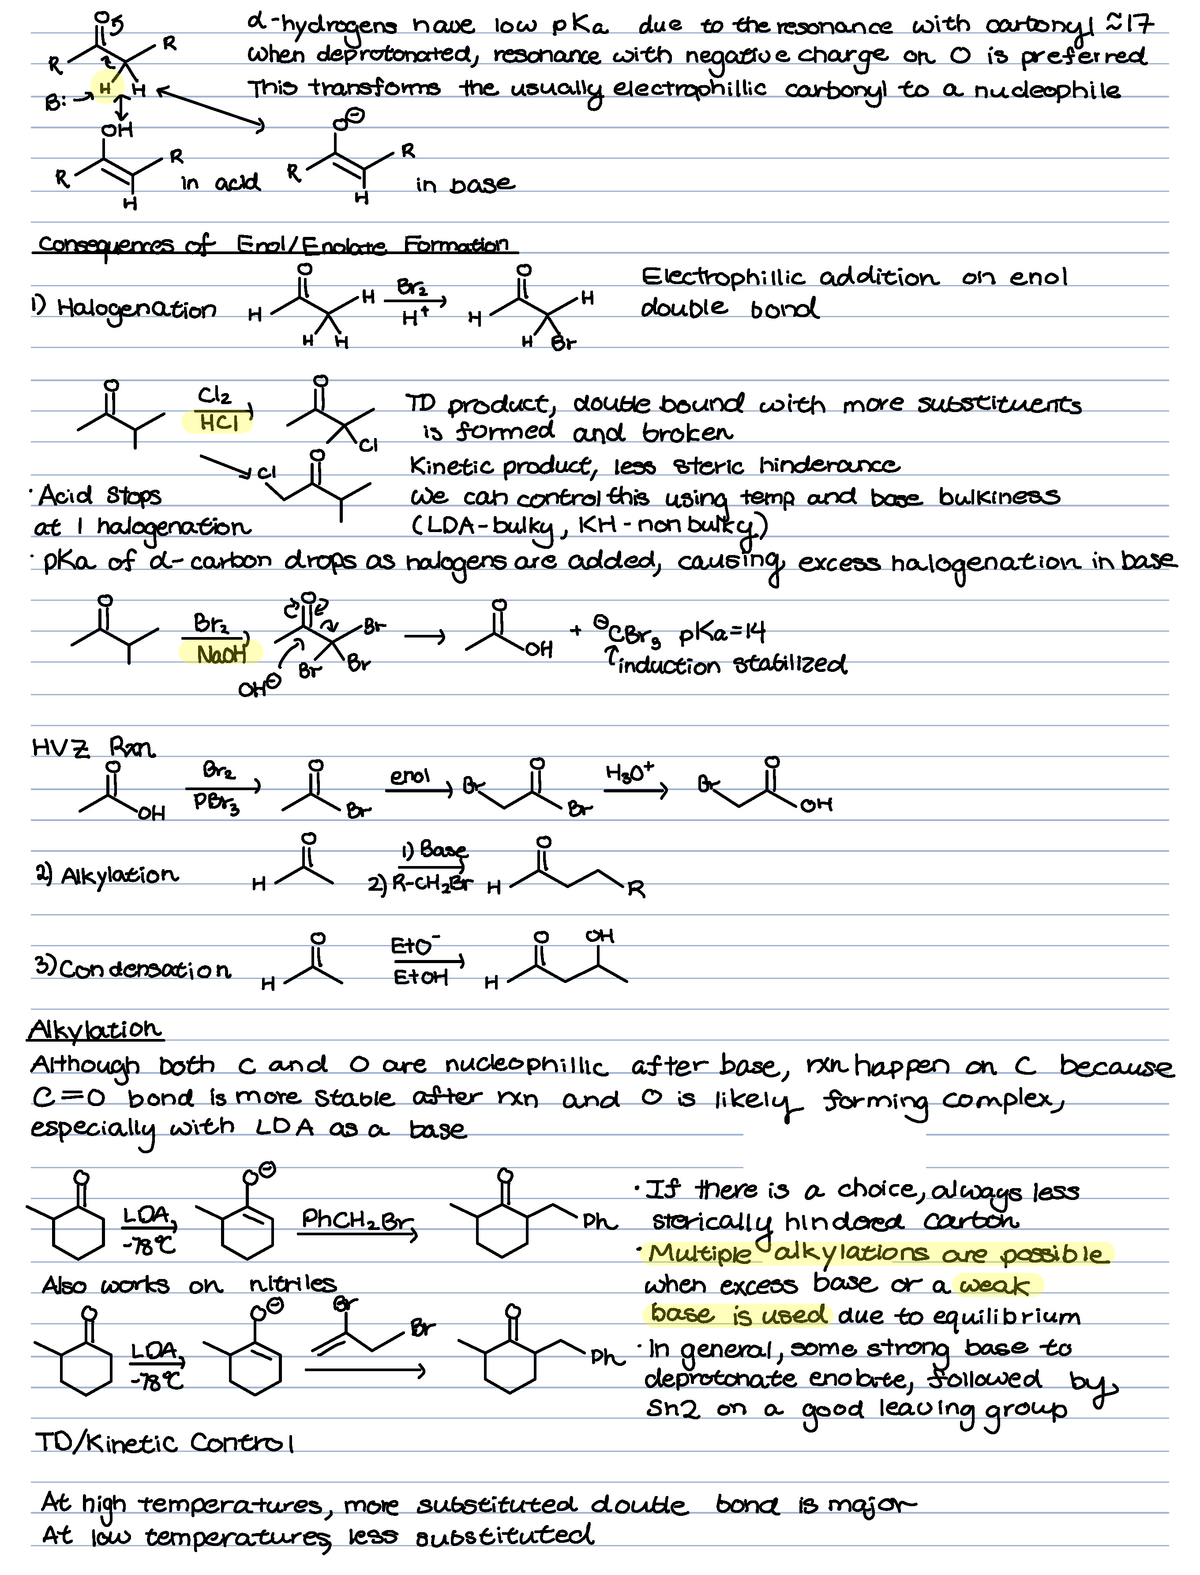 α-hydrogens have low pKa due to the resonance with carbonyl ≈17
when deprotonated, resonance with negative charge on O is preferred
This transforms the usually electrophillic carbonyl to a nucleophile
O
R
R
H H
B:
OH
R
R
H
in acid
O⊖
R
R
H
in base
Consequences of Enol/Enolate Formation
1) Halogenation
O
H
H
H H
Br2
H+
O
H
H
H Br
Electrophillic addition on enol
double bond
O
Cl2
HCl
O
Cl
TD product, double bound with more substituents
is formed and broken
Cl
O
Kinetic product, less steric hinderance
we can control this using temp and base bulkiness
(LDA-bulky, KH-non bulky)
· Acid stops
at 1 halogenation
· pKa of α-carbon drops as halogens are added, causing excess halogenation in base
O
Br2
NaOH
O
Br
Br
Br
OH⊖
O
OH
+ ⊖CBr3 pKa=14
↑induction stabilized
HVZ Rxn
O
OH
Br2
PBr3
O
Br
enol
Br
O
Br
H3O+
Br
O
OH
2) Alkylation
O
H
1) Base
2) R-CH2Br
O
H
R
3) Condensation
O
H
EtO-
EtOH
O
OH
H
Alkylation
Although both C and O are nucleophillic after base, rxn happen on C because
C=O bond is more stable after rxn and O is likely forming complex,
especially with LDA as a base
O
LDA,
-78°C
O⊖
PhCH2Br
O
Ph
· If there is a choice, always less
sterically hindered carbon
· Multiple alkylations are possible
when excess base or a weak
base is used due to equilibrium
· In general, some strong base to
deprotonate enolate, followed by
Sn2 on a good leaving group
Also works on nitriles
O
LDA,
-78°C
O⊖
Br
Br
O
Ph
TD/Kinetic Control
At high temperatures, more substituted double bond is major
At low temperatures, less substituted